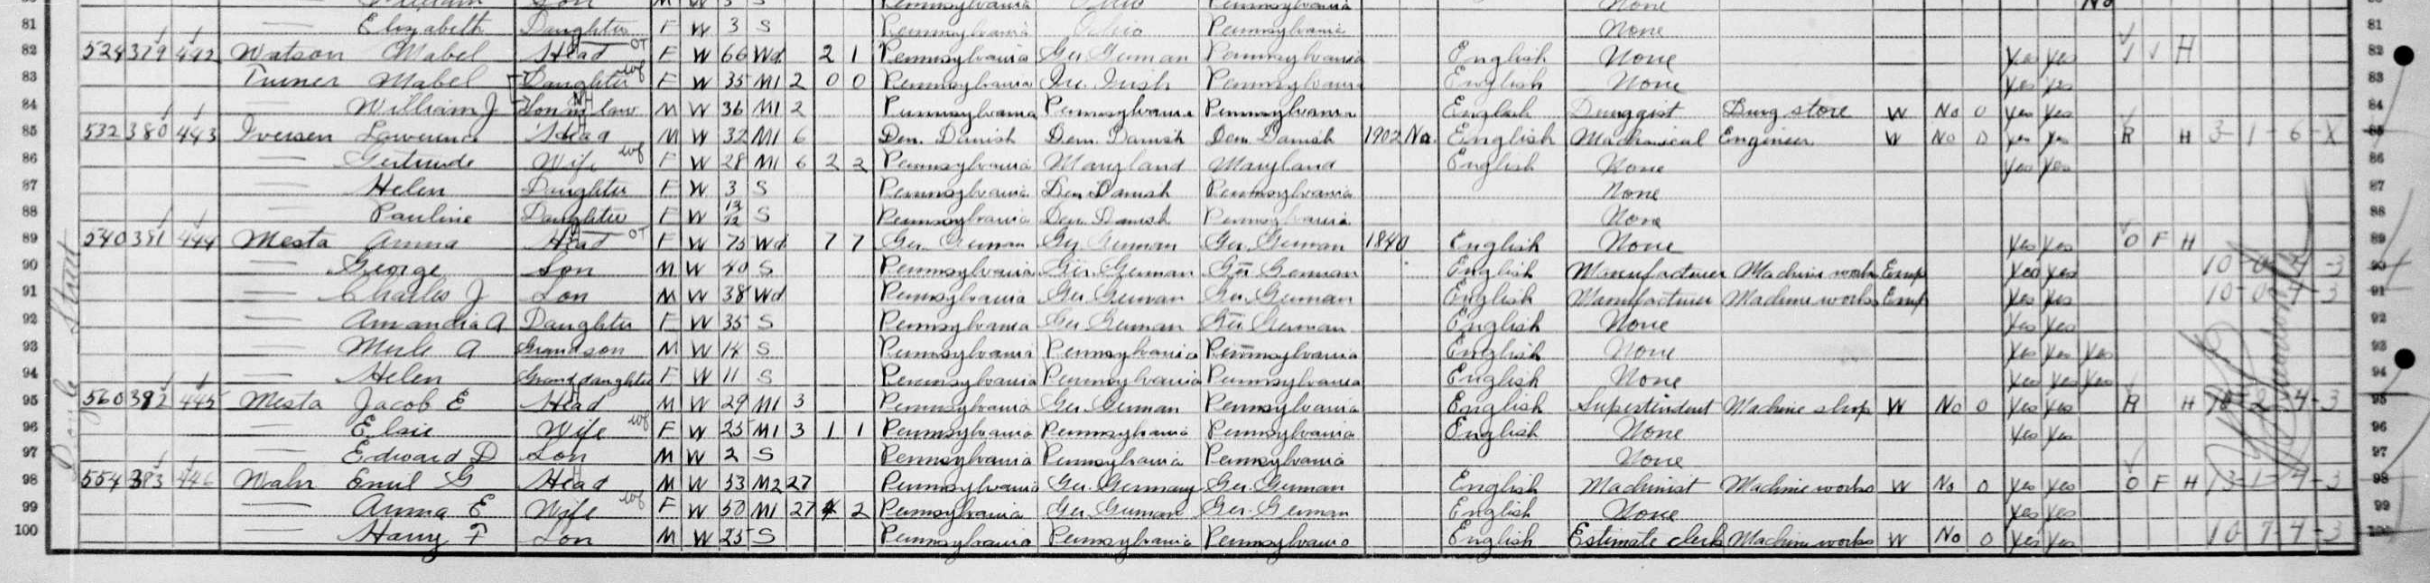 81 Elizabeth Daughter F W 3 S Pennsylvania Ohio Pennsylvania None 81
82 524 379 442 Watson Mabel Head F W 66 Wd 2 1 Pennsylvania Ger. German Pennsylvania English None Yes Yes H 82
83 Turner Mabel Daughter F W 35 M1 2 0 0 Pennsylvania Ire. Irish Pennsylvania English None Yes Yes 83
84 — William J Son in law M W 36 M1 2 Pennsylvania Pennsylvania Pennsylvania English Druggist Drug store W No 0 Yes Yes 84
85 532 380 443 Iversen Lawrence Head M W 32 M1 6 Den. Danish Den. Danish Den. Danish 1902 Na. English Mechanical Engineer W No 0 Yes Yes R H 3-1-6-X 85
86 — Gertrude Wife F W 28 M1 6 2 2 Pennsylvania Maryland Maryland English None Yes Yes 86
87 — Helen Daughter F W 3 S Pennsylvania Den. Danish Pennsylvania None 87
88 — Pauline Daughter F W 13/12 S Pennsylvania Den. Danish Pennsylvania None 88
89 540 381 444 Mesta Anna Head F W 75 Wd 7 7 Ger. German Ger. German Ger. German 1840 English None Yes Yes O F H 89
90 — George Son M W 40 S Pennsylvania Ger. German Ger. German English Manufacturer Machine works Emp Yes Yes 90
91 — Charles J Son M W 38 Wd Pennsylvania Ger. German Ger. German English Manufacturer Machine works Emp Yes Yes 91
92 — Amandia A Daughter F W 35 S Pennsylvania Ger. German Ger. German English None Yes Yes 92
93 — Merle A Grandson M W 14 S Pennsylvania Pennsylvania Pennsylvania English None Yes Yes Yes 93
94 — Helen Grand daughter F W 11 S Pennsylvania Pennsylvania Pennsylvania English None Yes Yes Yes 94
95 560 382 445 Mesta Jacob E Head M W 29 M1 3 Pennsylvania Ger. German Pennsylvania English Supertindent Machine shop W No 0 Yes Yes R H 95
96 — Elsie Wife F W 25 M1 3 1 1 Pennsylvania Pennsylvania Pennsylvania English None Yes Yes 96
97 — Edward D Son M W 2 S Pennsylvania Pennsylvania Pennsylvania None 97
98 554 383 446 Wahr Emil G Head M W 53 M2 27 Pennsylvania Ger. Germany Ger. German English Machinist Machine works W No 0 Yes Yes O F H 98
99 — Anna E Wife F W 50 M1 27 4 2 Pennsylvania Ger. German Ger. German English None Yes Yes 99
100 — Harry F Son M W 25 S Pennsylvania Pennsylvania Pennsylvania English Estimate clerk Machine works W No 0 Yes Yes 10-7-4-3 100